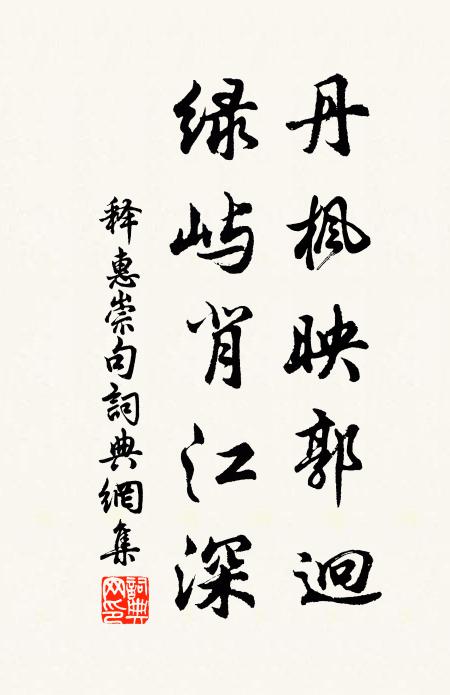 丹楓映郭迥
绿屿背江深
释惠崇句詞典網集
詞典
网印